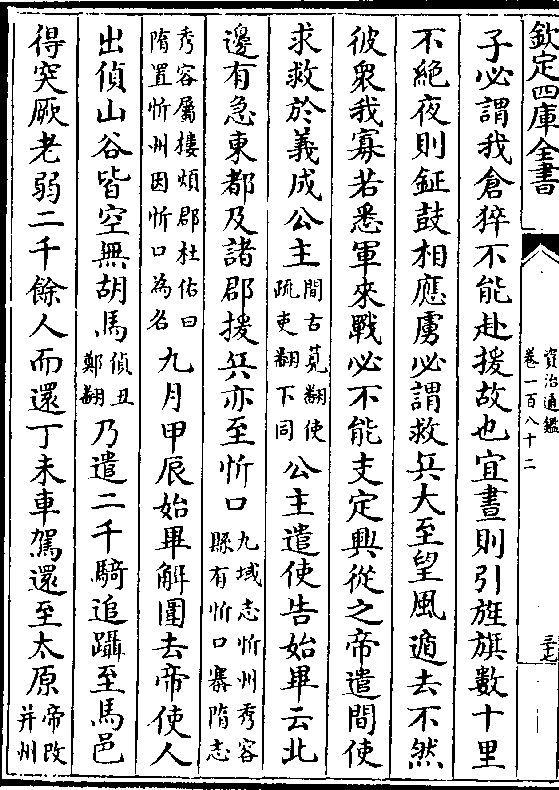 欽定四庫全書
資治通鑑
卷一百八十二
三十七
子必謂我倉猝不能赴援故也宜晝則引旌旗數十里
不絶夜則鉦鼓相應虜必謂救兵大至望風遁去不然
彼衆我寡若悉軍來戰必不能支定興從之帝遣間使
求救於義成公主間古莧翻使疏吏翻下同公主遣使告始畢云北
邊有急東都及諸郡援兵亦至忻口九域志忻州秀容縣有忻口寨隋志
秀容屬樓煩郡杜佑曰隋置忻州因忻口為名九月甲辰始畢解圍去帝使人
出偵山谷皆空無胡馬偵丑鄭翻乃遣二千騎追躡至馬邑
得突厥老弱二千餘人而還丁未車駕還至太原帝改并州